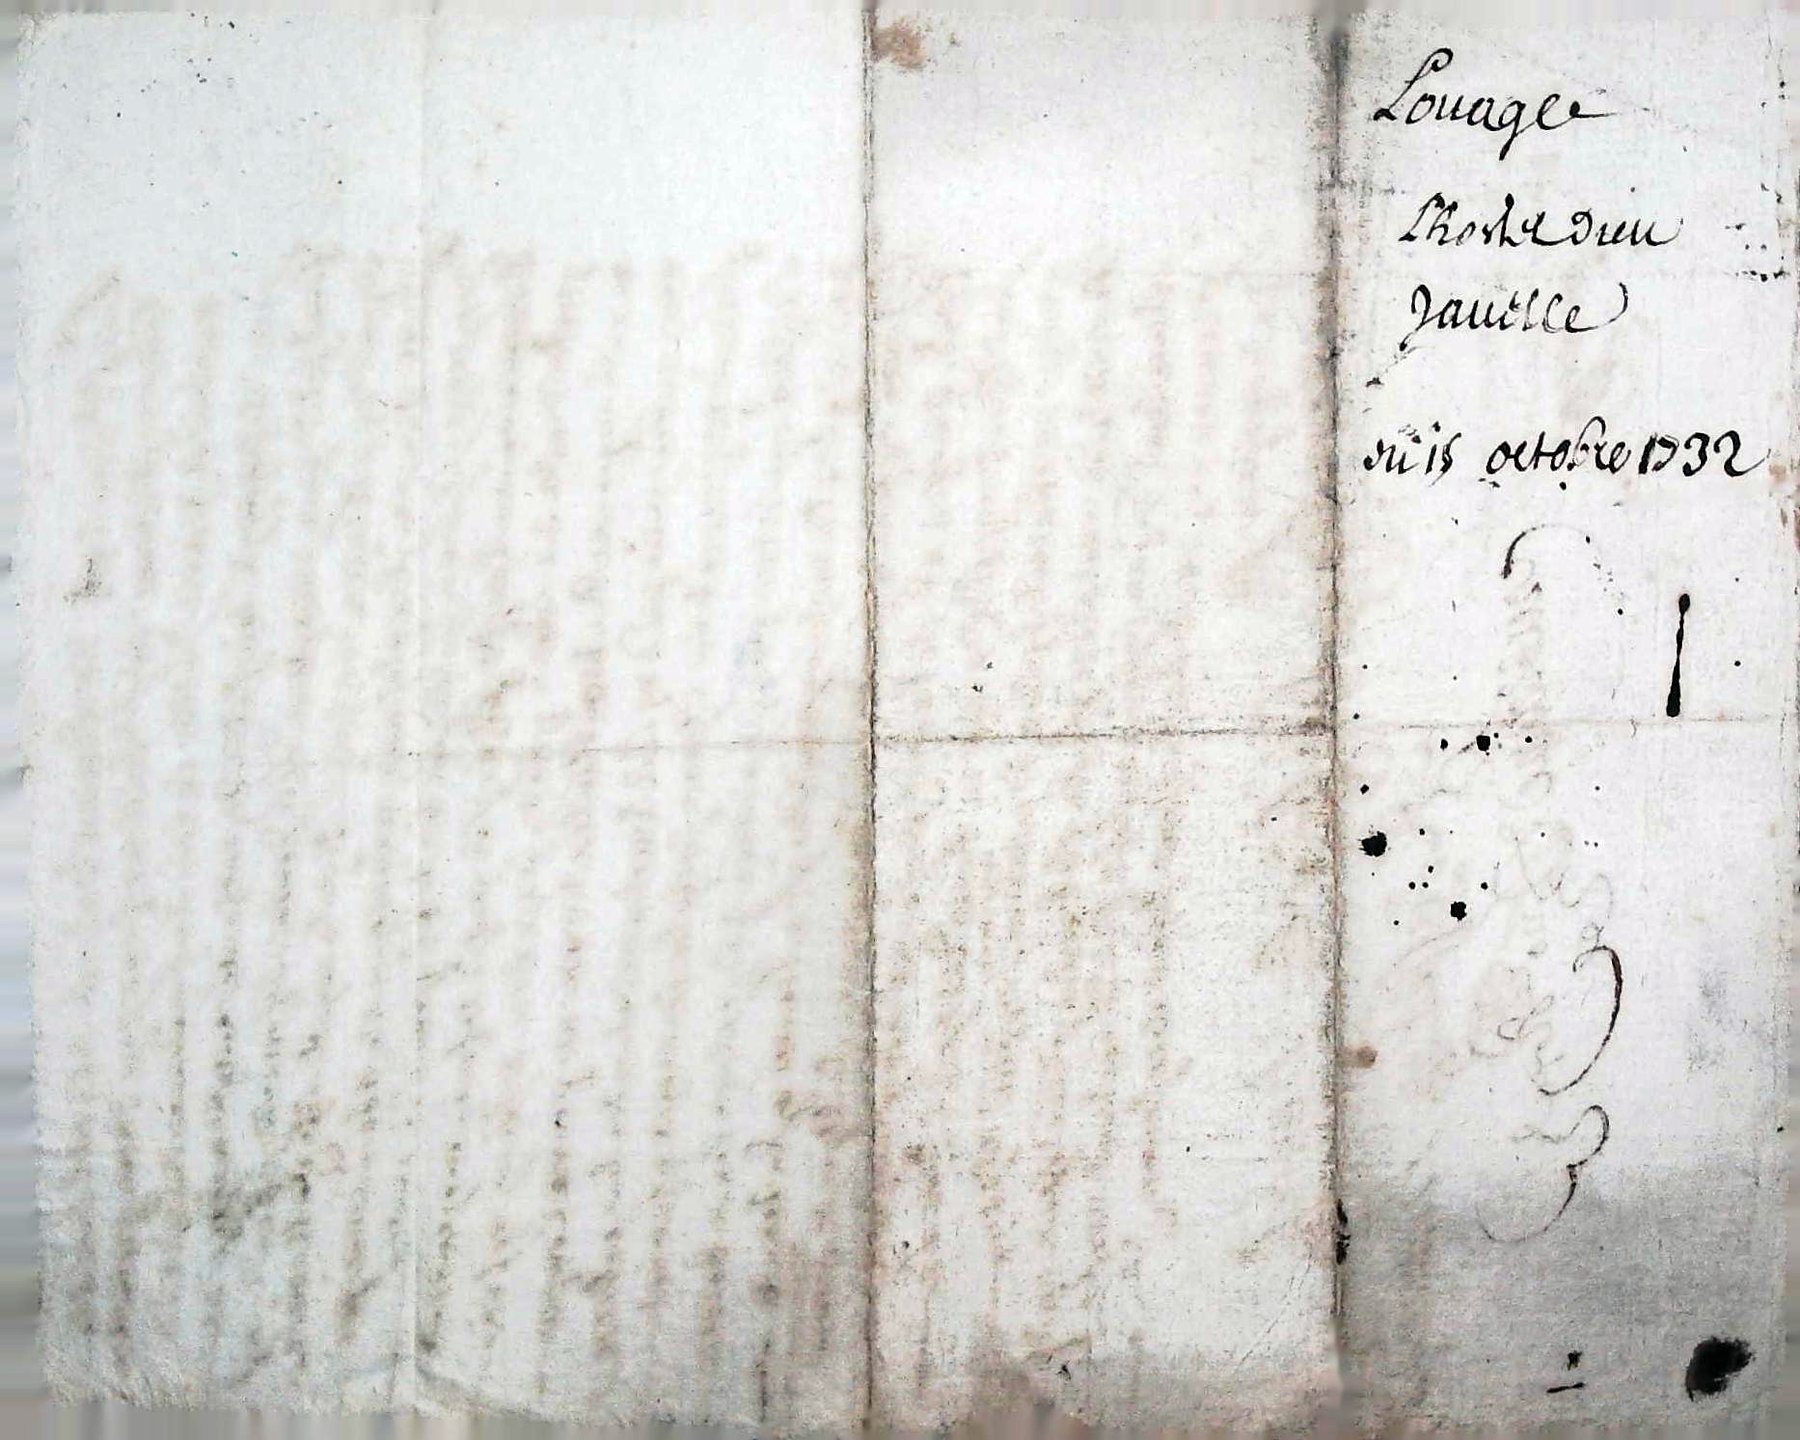 Louage
Lhostel Dieu
Janville
du 15 octobre 1732